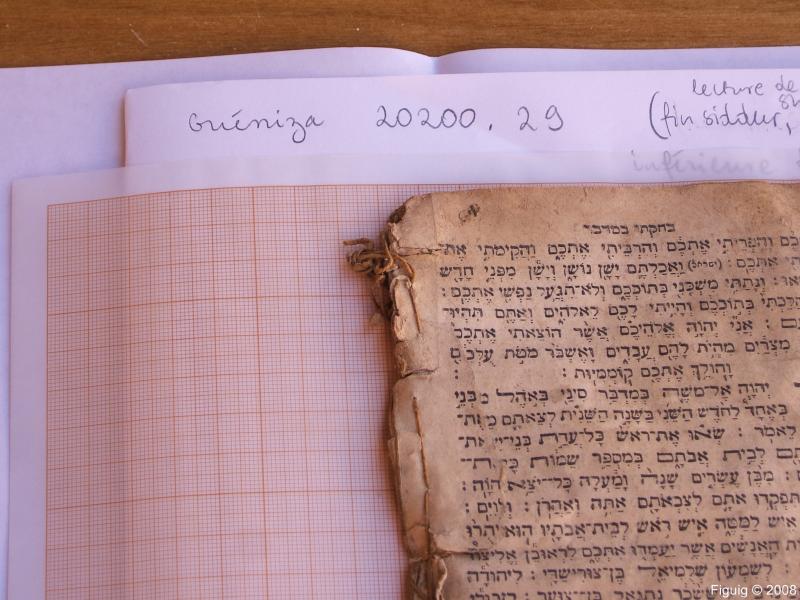 lecture de
Guéniza 20200.29 (fin siddur,
inférieure
בחקתי במדבר
והפריתי אתכם והרביתי אתכם והקימתי את
אתכם : (ישראל) ואכלתם ישן נושן וישן מפני חדש
ונתתי משכני בתוככם ולא־תגעל נפשי אתכם :
בתוככם והייתי לכם לאלהים ואתם תהיו
: אני יהוה אלהיכם אשר הוצאתי אתכם
מצרים מהית להם עבדים ואשבר מטת עלכם
ואולך אתכם קוממיות :
יהוה אל־משה במדבר סיני באהל
באחד לחדש השני בשנה השנית לצאתם
לאמר : שאו את־ראש כל־עדת בני־
לבית אבתם במספר שמות
: מבן עשרים שנה ומעלה כל־יצא
תפקדו אתם לצבאתם אתה ואהרן :
איש למטה איש ראש לבית־אבתיו הוא
האנשים אשר יעמדו אתכם לראובן
: לשמעון שלמיאל בן־צורישדי : ליהודה
Figuig © 2008